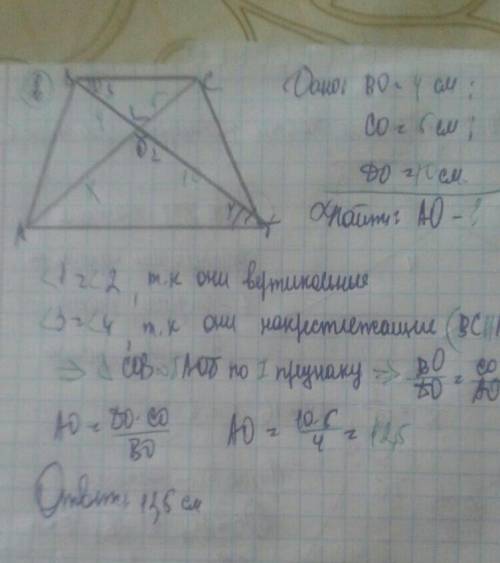 Дано: BO = 4 см;
CO = 5 см;
DO = 10 см.
Найти: AO - ?
B 3 C
4 5
1
O 2
x 10
4
A D
<1 = <2, т.к они вертикальные
<3 = <4, т.к они накрестлежащие (BC||
=> Δ COB ~ AOD по I признаку => BO/DO = CO/AO
AO = DO·CO/BO AO = 10·5/4 = 12,5
Ответ: 12,5 см